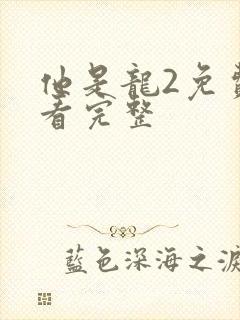 他是龍2免費
看完整
藍色深海之淚